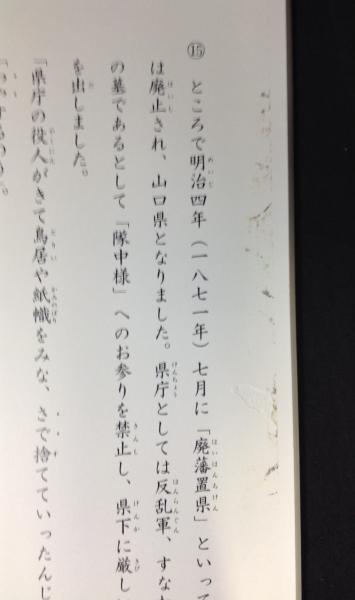 ⑮ ところで明治四年（一八七一年）七月に「廃藩置県」といって
は廃止され、山口県となりました。県庁としては反乱軍、すなわ
の墓であるとして「隊中様」へのお参りを禁止し、県下に厳し
を出しました。
「県庁の役人がきて鳥居や紙幟をみな、さで捨てていったんじ